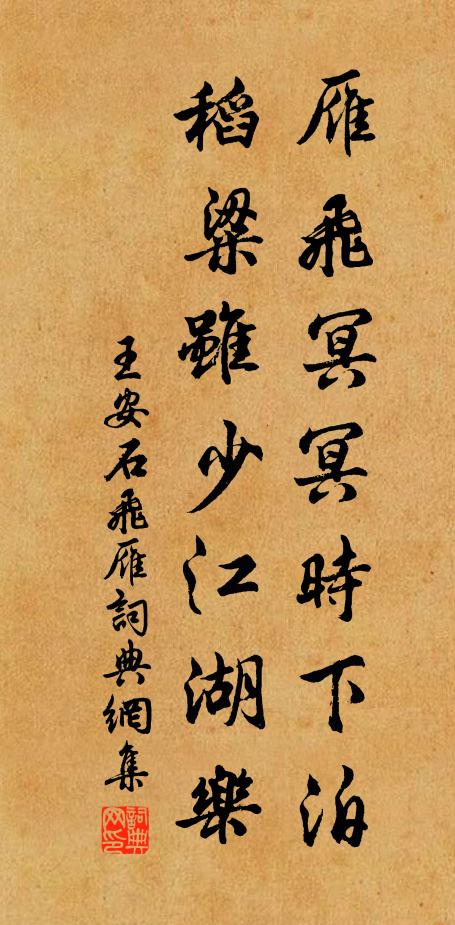 雁飛冥冥時下泊
稻粱雖少江湖樂
王安石飛雁詞典網集
詞典网印